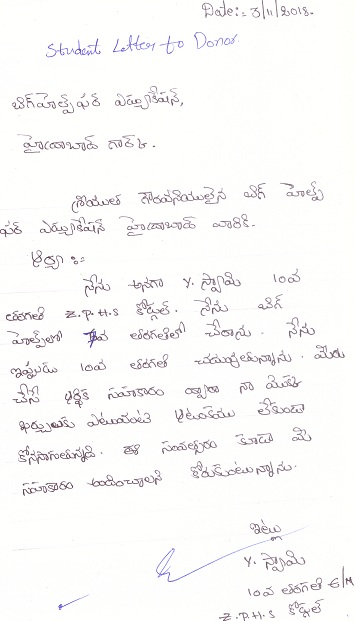 Date:- 3/11/2018.
Student Letter to Donor
బిగ్‌హెల్ప్‌ఫర్ ఎడ్యుకేషన్,
హైదరాబాద్ గార్కి.
శ్రీయుత గౌరవనీయులైన బిగ్ హెల్ప్
ఫర్ ఎడ్యుకేషన్ హైదరాబాద్ వారికి.
ఆర్యా :-
నేను అనగా Y. స్వామి 10వ
తరగతి Z.P.H.S కోడ్గల్. నేను బిగ్
హెల్ప్‌లో 7వ తరగతిలో చేరాను. నేను
ఇప్పుడు 10వ తరగతి చదువుతున్నాను. మీరు
చేసే ఆర్థిక సహకారం ద్వారా నా
ఖర్చులకు ఎటువంటి ఆటంకము లేకుండా
కొనసాగుతున్నది. ఈ సంవత్సరం కూడా మీ
సహకారం అందించాలని కోరుకుంటున్నాను.
ఇట్లు
Y. స్వామి
10వ తరగతి E/M
Z.P.H.S కోడ్గల్